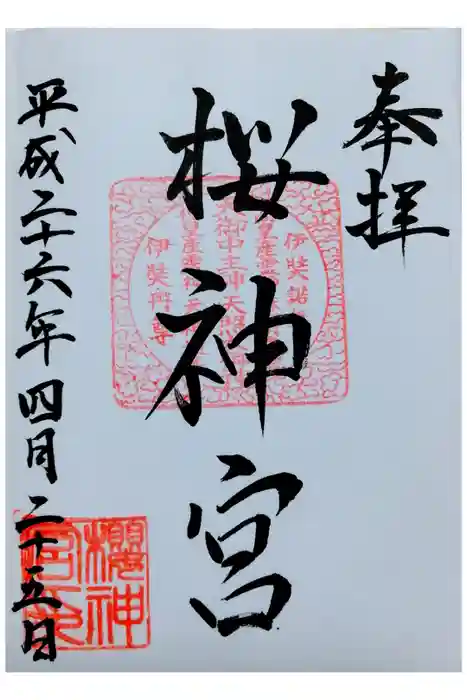 奉拝
桜神宮
平成二十六年四月二十五日
伊奘諾
天御中主神天照
伊奘冉尊
櫻神
宮